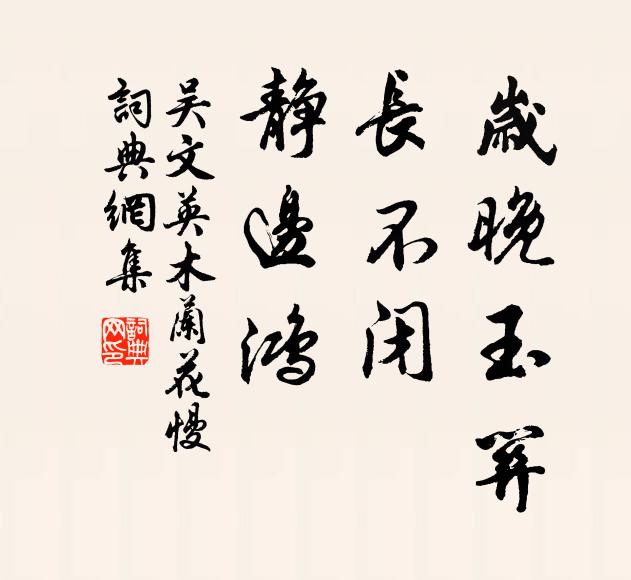 歲晚玉關
長不闭
静邊鴻
吴文英木蘭花慢
詞典網集
詞典
网印